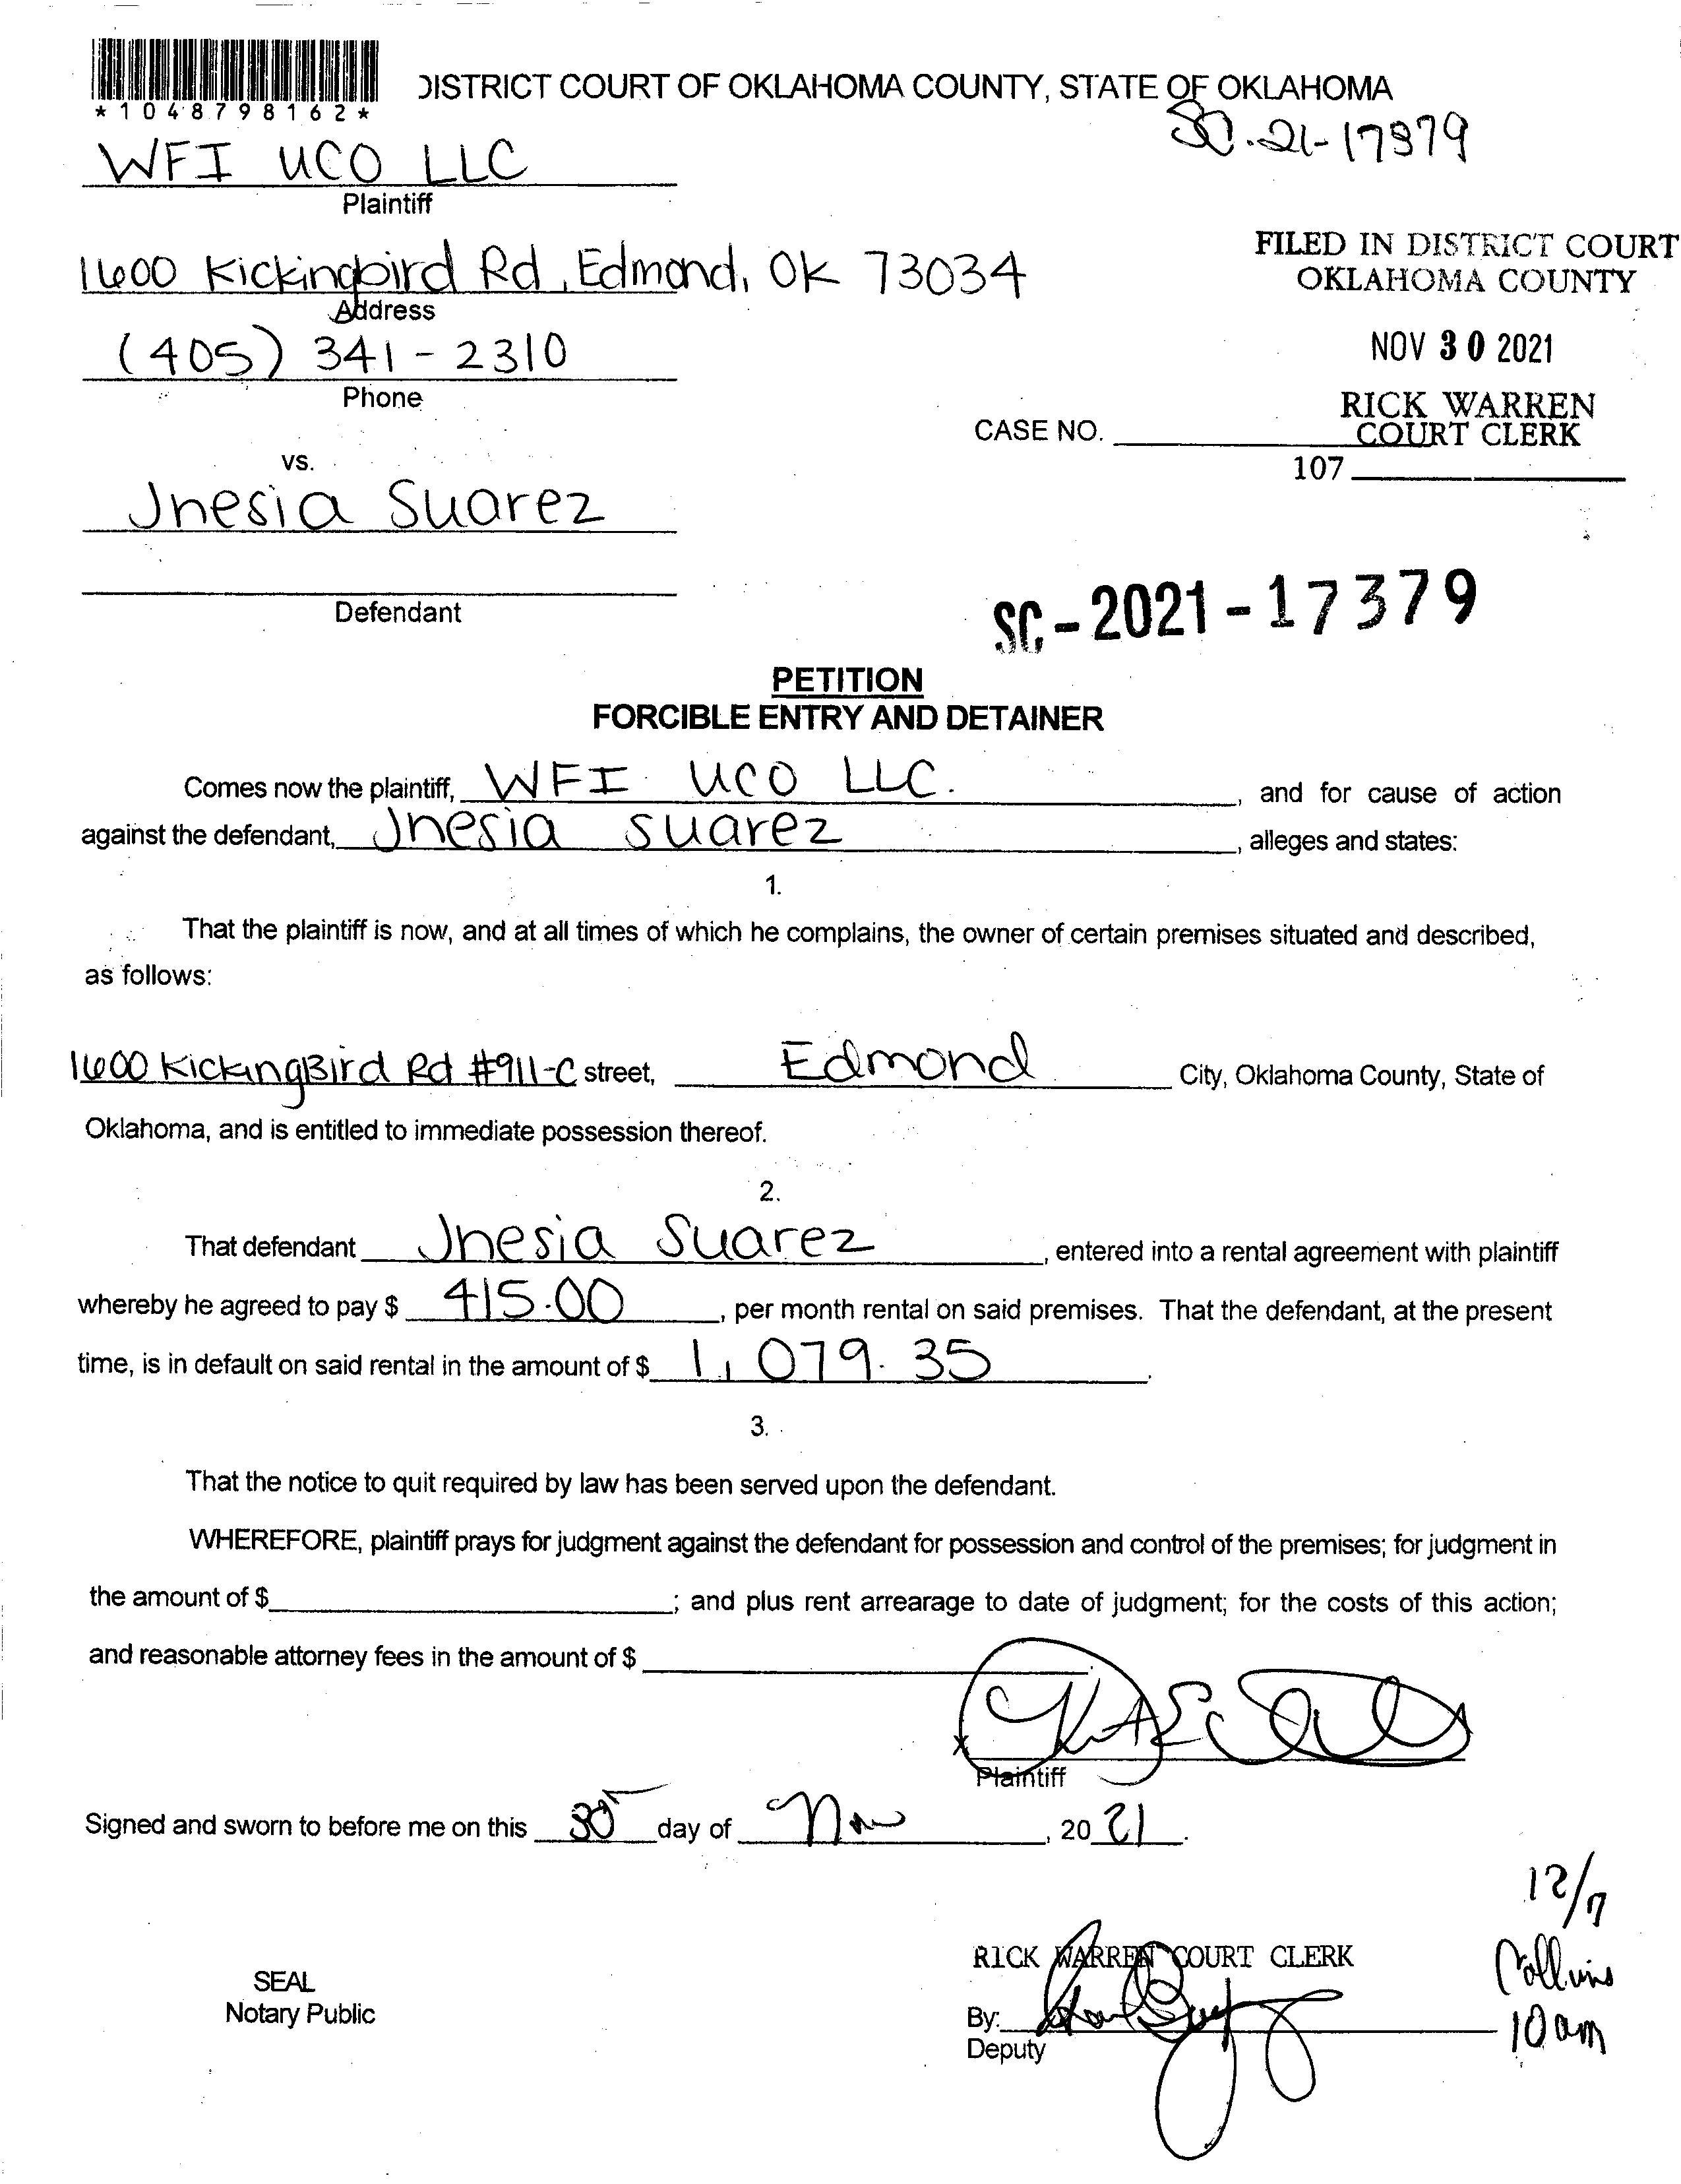 *1048798162*
DISTRICT COURT OF OKLAHOMA COUNTY, STATE OF OKLAHOMA
SC-21-17379
WFI UCO LLC
Plaintiff
1600 Kickingbird Rd, Edmond, OK 73034
Address
FILED IN DISTRICT COURT
OKLAHOMA COUNTY
(405) 341-2310
Phone
NOV 30 2021
RICK WARREN
COURT CLERK
CASE NO.
107
vs.
Jnesia Suarez
Defendant
SC-2021-17379
PETITION
FORCIBLE ENTRY AND DETAINER
Comes now the plaintiff, WFI UCO LLC. , and for cause of action
against the defendant, Jnesia suarez , alleges and states:
1.
That the plaintiff is now, and at all times of which he complains, the owner of certain premises situated and described,
as follows:
1600 KickingBird Rd #911-C street, Edmond City, Oklahoma County, State of
Oklahoma, and is entitled to immediate possession thereof.
2.
That defendant Jnesia Suarez , entered into a rental agreement with plaintiff
whereby he agreed to pay $ 415.00 , per month rental on said premises. That the defendant, at the present
time, is in default on said rental in the amount of $ 1,079.35 .
3.
That the notice to quit required by law has been served upon the defendant.
WHEREFORE, plaintiff prays for judgment against the defendant for possession and control of the premises; for judgment in
the amount of $ ; and plus rent arrearage to date of judgment; for the costs of this action;
and reasonable attorney fees in the amount of $ .
x
Plaintiff
Signed and sworn to before me on this 30 day of Nov , 20 21 .
12/7
Collins
10am
RICK WARREN COURT CLERK
SEAL
Notary Public
By:
Deputy